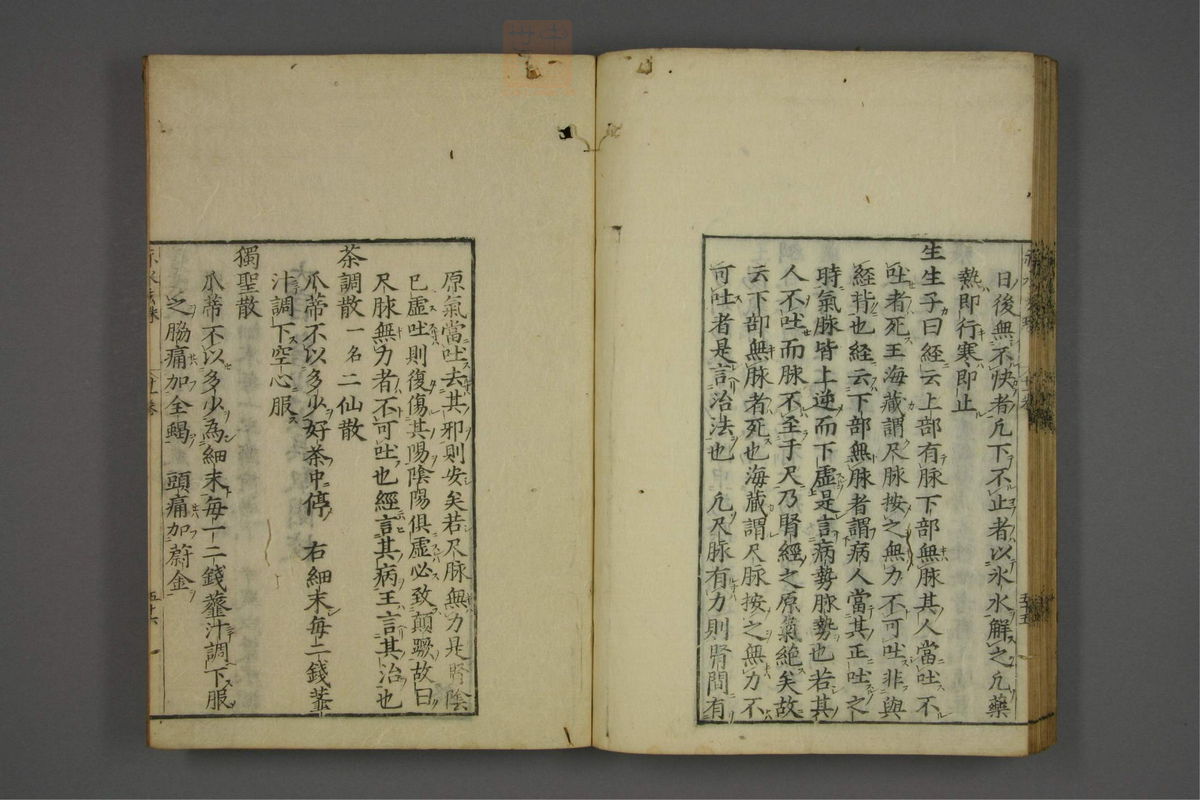 日後無不快者凢下不止者以氷水解之凢藥
熱即行寒即止
生生子曰經云上部有脉下部無脉其人當吐不
吐者死王海藏謂尺脉按之無力不可吐非與
經背也経云下部無脉者謂病人當其正吐之
時氣脉皆上逆而下虚是言病勢脉勢也若其
人不吐而脉不至于尺乃腎經之原氣絶矣故
云下部無脉者死也海藏謂尺脉按之無力不
可吐者是言治法也 凢尺脉有力則腎間有
五十五
原氣當吐去其邪則安矣若尺脉無力是腎陰
已虚吐則復傷其陽陰陽俱虚必致顛蹶故曰
尺脉無力者不可吐也經言其病王言其治也
茶調散一名二仙散
瓜蒂不以多少好茶中停 右細末每二錢虀
汁調下空心服
獨聖散
瓜蒂不以多少為細末每一二錢虀汁調下服
之脇痛加全蝎 頭痛加蔚金
五十六